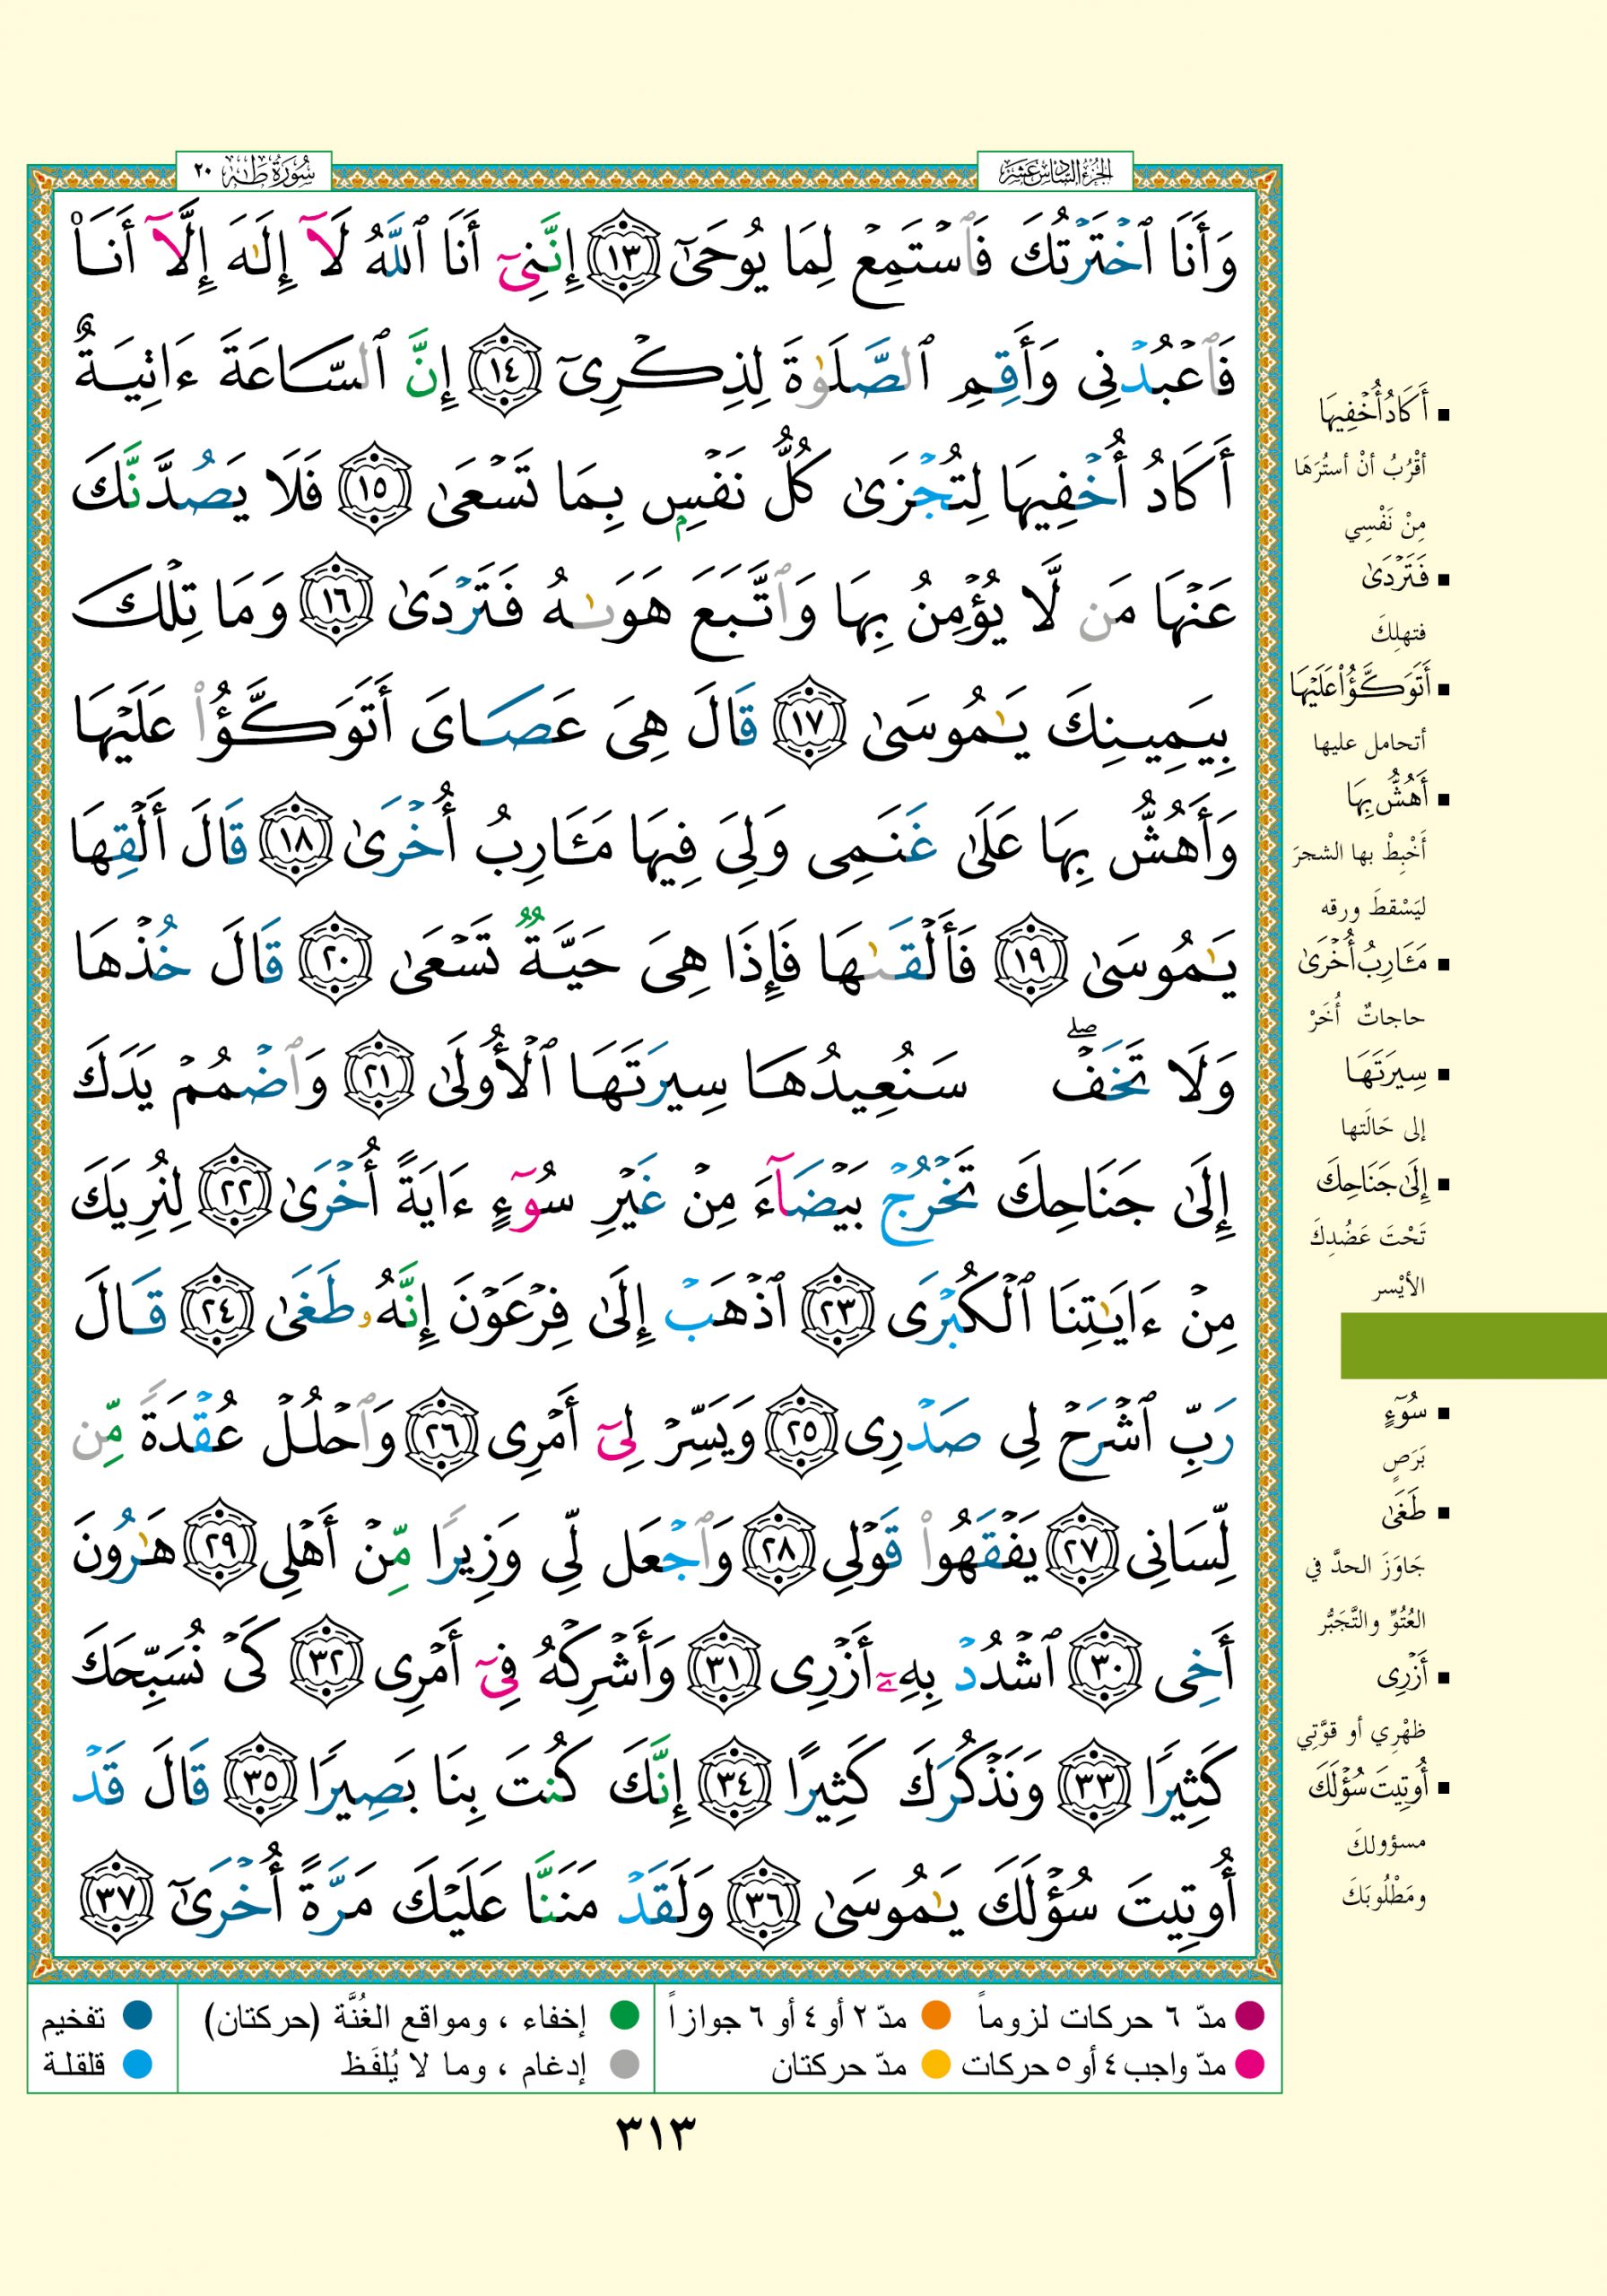 الجزء السادس عشر
سُورَةُ طه ٢٠
وَأَنَا ٱخۡتَرۡتُكَ فَٱسۡتَمِعۡ لِمَا يُوحَىٰٓ ١٣ إِنَّنِيٓ أَنَا ٱللَّهُ لَآ إِلَٰهَ إِلَّآ أَنَا۠
فَٱعۡبُدۡنِي وَأَقِمِ ٱلصَّلَوٰةَ لِذِكۡرِيٓ ١٤ إِنَّ ٱلسَّاعَةَ ءَاتِيَةٌ
أَكَادُ أُخۡفِيهَا لِتُجۡزَىٰ كُلُّ نَفۡسِۭ بِمَا تَسۡعَىٰ ١٥ فَلَا يَصُدَّنَّكَ
عَنۡهَا مَن لَّا يُؤۡمِنُ بِهَا وَٱتَّبَعَ هَوَىٰهُ فَتَرۡدَىٰ ١٦ وَمَا تِلۡكَ
بِيَمِينِكَ يَٰمُوسَىٰ ١٧ قَالَ هِيَ عَصَايَ أَتَوَكَّؤُاْ عَلَيۡهَا
وَأَهُشُّ بِهَا عَلَىٰ غَنَمِي وَلِيَ فِيهَا مَـَٔارِبُ أُخۡرَىٰ ١٨ قَالَ أَلۡقِهَا
يَٰمُوسَىٰ ١٩ فَأَلۡقَىٰهَا فَإِذَا هِيَ حَيَّةٞ تَسۡعَىٰ ٢٠ قَالَ خُذۡهَا
وَلَا تَخَفۡۖ سَنُعِيدُهَا سِيرَتَهَا ٱلۡأُولَىٰ ٢١ وَٱضۡمُمۡ يَدَكَ
إِلَىٰ جَنَاحِكَ تَخۡرُجۡ بَيۡضَآءَ مِنۡ غَيۡرِ سُوٓءٍ ءَايَةً أُخۡرَىٰ ٢٢ لِنُرِيَكَ
مِنۡ ءَايَٰتِنَا ٱلۡكُبۡرَى ٢٣ ٱذۡهَبۡ إِلَىٰ فِرۡعَوۡنَ إِنَّهُۥ طَغَىٰ ٢٤ قَالَ
رَبِّ ٱشۡرَحۡ لِي صَدۡرِي ٢٥ وَيَسِّرۡ لِيٓ أَمۡرِي ٢٦ وَٱحۡلُلۡ عُقۡدَةٗ مِّن
لِّسَانِي ٢٧ يَفۡقَهُواْ قَوۡلِي ٢٨ وَٱجۡعَل لِّي وَزِيرٗا مِّنۡ أَهۡلِي ٢٩ هَٰرُونَ
أَخِي ٣٠ ٱشۡدُدۡ بِهِۦٓ أَزۡرِي ٣١ وَأَشۡرِكۡهُ فِيٓ أَمۡرِي ٣٢ كَيۡ نُسَبِّحَكَ
كَثِيرٗا ٣٣ وَنَذۡكُرَكَ كَثِيرًا ٣٤ إِنَّكَ كُنتَ بِنَا بَصِيرٗا ٣٥ قَالَ قَدۡ
أُوتِيتَ سُؤۡلَكَ يَٰمُوسَىٰ ٣٦ وَلَقَدۡ مَنَنَّا عَلَيۡكَ مَرَّةً أُخۡرَىٰٓ ٣٧
▪ أَكَادُ أُخۡفِيهَا
أقْرُبُ أنْ أستُرَهَا
مِنْ نَفْسِي
▪ فَتَرۡدَىٰ
فتهلِكَ
▪ أَتَوَكَّؤُاْ عَلَيۡهَا
أتحامل عليها
▪ أَهُشُّ بِهَا
أَخْبِطُ بها الشجرَ
ليَسْقطَ ورقه
▪ مَـَٔارِبُ أُخۡرَىٰ
حاجاتٌ أُخَرْ
▪ سِيرَتَهَا
إلى حَالَتها
▪ إِلَىٰ جَنَاحِكَ
تَحْتَ عَضُدِكَ
الأيْسر
▪ سُوٓءٍ
بَرَصٍ
▪ طَغَىٰ
جَاوَزَ الحدَّ في
العُتُوِّ والتَّجَبُّر
▪ أَزۡرِي
ظهْرِي أو قوَّتِي
▪ أُوتِيتَ سُؤۡلَكَ
مسؤولكَ
ومَطْلُوبَكَ
مدّ ٦ حركات لزوماً ● مدّ ٢ أو ٤ أو ٦ جوازاً ● إخفاء ، ومواقع الغُنَّة (حركتان) ● تفخيم
مدّ واجب ٤ أو ٥ حركات ● مدّ حركتان ● إدغام ، وما لا يُلفَظ ● قلقلة
٣١٣